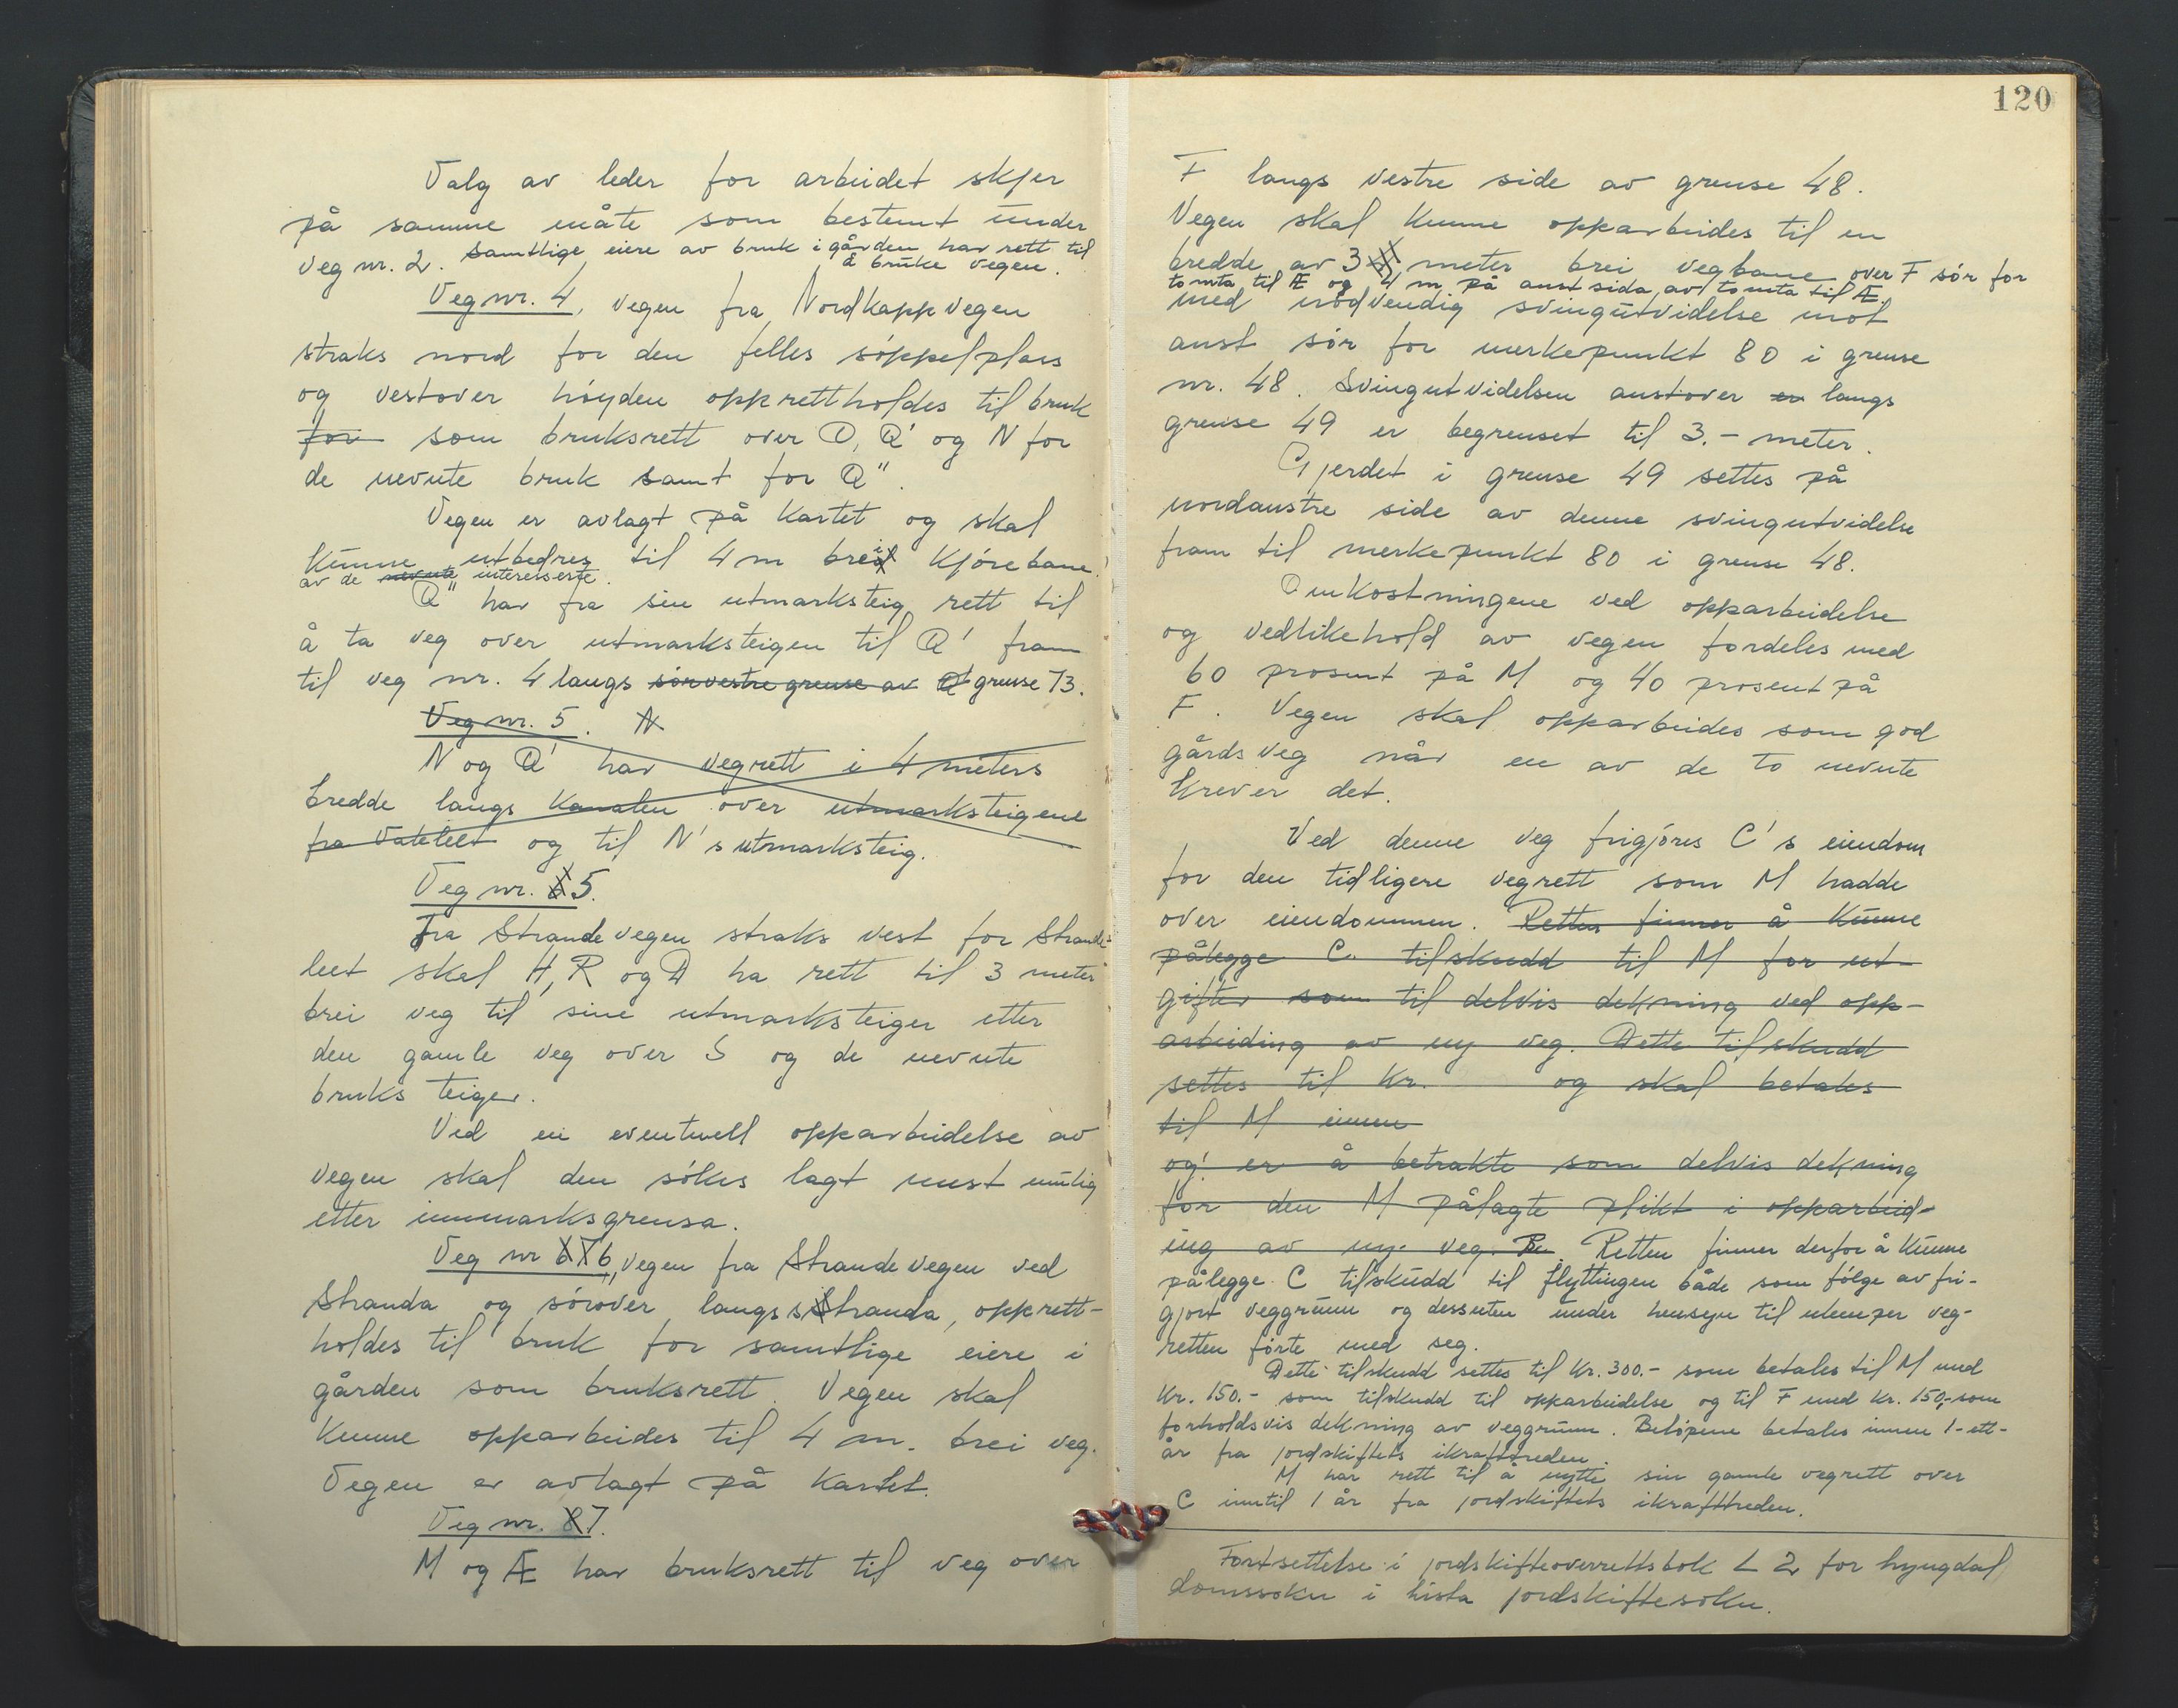 Valg av leder for arbeidet skjer
på samme måte som bestemt under
veg nr. 2. Samtlige eiere av bruk i gården har rett til
å bruke vegen.
Veg nr. 4, vegen fra Nordkappvegen
straks nord for den felles søppelplass
og vestover høyden opprettholdes til bruk
for som bruksrett over O, Q' og N for
de nevnte bruk samt for Q".
Vegen er avlagt på kartet og skal
kunne utbedres til 4 m brei kjørebane.
av de nevnte interesserte.
Q" har fra sin utmarksteig rett til
å ta veg over utmarksteigen til Q' fram
til veg nr. 4 langs sørvestre grense av Q' grense 73.
Veg nr. 5. N
N og Q' har vegrett i 4 meters
bredde langs kanalen over utmarksteigene
fra Vatleet og til N's utmarksteig.
Veg nr. 6 5.
Fra Strandevegen straks vest for Strande-
leet skal H, R og D ha rett til 3 meter
brei veg til sine utmarksteiger etter
den gamle veg over S og de nevnte
bruks teiger.
Ved ei eventuell opparbeidelse av
vegen skal den søkes lagt mest mulig
etter innmarksgrensa.
Veg nr 6 7 6, vegen fra Strandevegen ved
Stranda og sørover langs stranda, opprett-
holdes til bruk for samtlige eiere i
gården som bruksrett. Vegen skal
kunne opparbeides til 4 m. brei veg.
Vegen er avlagt på kartet.
Veg nr. 8 7.
M og Æ har bruksrett til veg over
120
F langs vestre side av grense 48.
Vegen skal kunne opparbeides til en
bredde av 3 4 meter brei vegbane over F sør for
tomta til Æ og 4 m på aust sida av tomta til Æ.
med nødvendig svingutvidelse mot
aust sør for merkepunkt 80 i grense
nr. 48. Svingutvidelsen austover er langs
grense 49 er begrenset til 3.- meter.
Gjerdet i grense 49 settes på
nordaustre side av denne svingutvidelse
fram til merkepunkt 80 i grense 48.
Omkostningene ved opparbeidelse
og vedlikehold av vegen fordeles med
60 prosent på M og 40 prosent på
F. Vegen skal opparbeides som god
gårdsveg når en av de to nevnte
krever det.
Ved denne veg frigjøres C's eiendom
for den tidligere vegrett som M hadde
over eiendommen. Retten finner å kunne
pålegge C. tilskudd til M for ut-
gifter som til delvis dekning ved opp-
arbeiding av ny veg. Dette tilskudd
settes til kr. og skal betales
til M innen
og er å betrakte som delvis dekning
for den M pålagte plikt i opparbeid-
ing av ny veg. Re Retten finner derfor å kunne
pålegge C tilskudd til flyttingen både som følge av fri-
gjort veggrunn og dessuten under hensyn til ulemper veg-
retten førte med seg.
Dette tilskudd settes til kr. 300.- som betales til M med
kr. 150.- som tilskudd til opparbeidelse og til F med kr. 150,- som
forholdsvis dekning av veggrunn. Beløpene betales innen 1 - ett -
år fra jordskiftets ikrafttreden.
M har rett til å nytte sin gamle vegrett over
C inntil 1 år fra jordskiftets ikrafttreden.
Fortsettelse i jordskifteoverrettsbok L 2 for Lyngdal
domssokn i Lista jordskiftesokn.